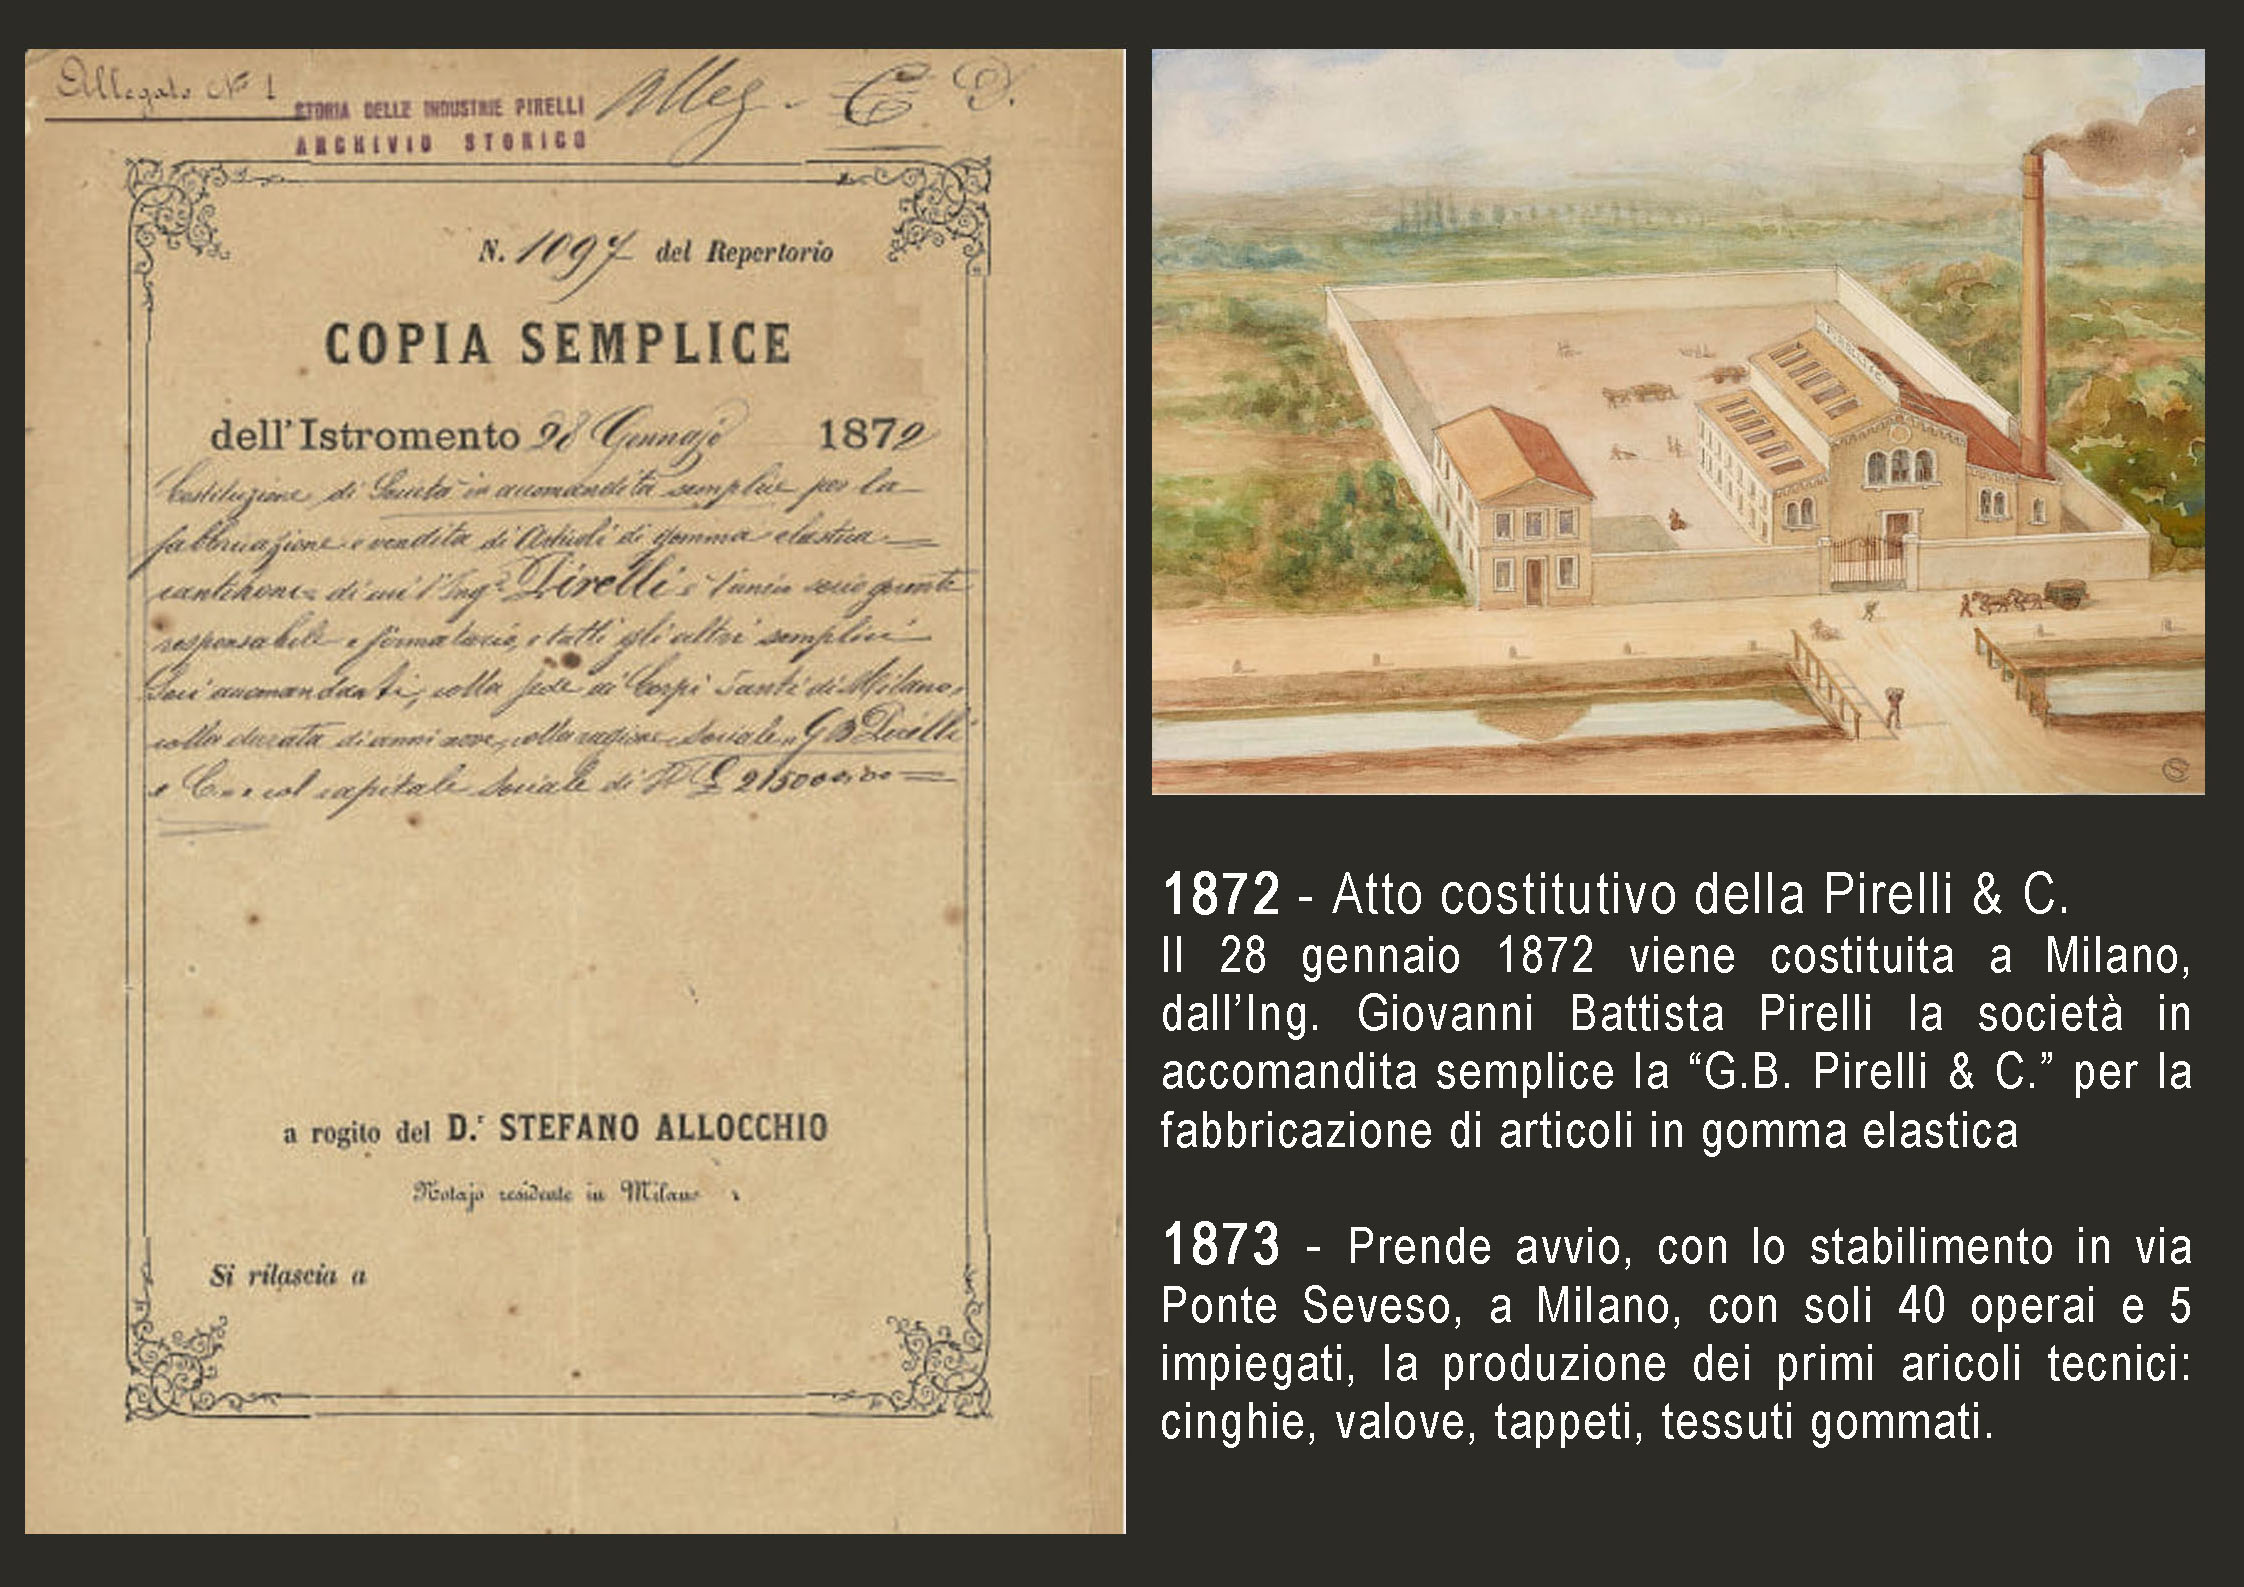 Allegato N° 1
STORIA DELLE INDUSTRIE PIRELLI
ARCHIVIO STORICO
Alleg. C D.
N. 1097 del Repertorio
COPIA SEMPLICE
dell'Istromento 28 Gennajo 1872
Costituzione di Società in accomandita semplice per la
fabbricazione e vendita di Articoli di gomma elastica
di cui l'Ing.r Pirelli è l'unico socio gerente
responsabile e firmatario, e tutti gli altri semplici
Soci accomandanti, colla sede ai Corpi Santi di Milano,
colla durata di anni nove, colla ragione sociale "G B Pirelli
e C." e col capitale sociale di 215000.00
a rogito del D.r STEFANO ALLOCCHIO
Notajo residente in Milano
Si rilascia a
1872 - Atto costitutivo della Pirelli & C.
Il 28 gennaio 1872 viene costituita a Milano,
dall’Ing. Giovanni Battista Pirelli la società in
accomandita semplice la “G.B. Pirelli & C.” per la
fabbricazione di articoli in gomma elastica
1873 - Prende avvio, con lo stabilimento in via
Ponte Seveso, a Milano, con soli 40 operai e 5
impiegati, la produzione dei primi aricoli tecnici:
cinghie, valove, tappeti, tessuti gommati.